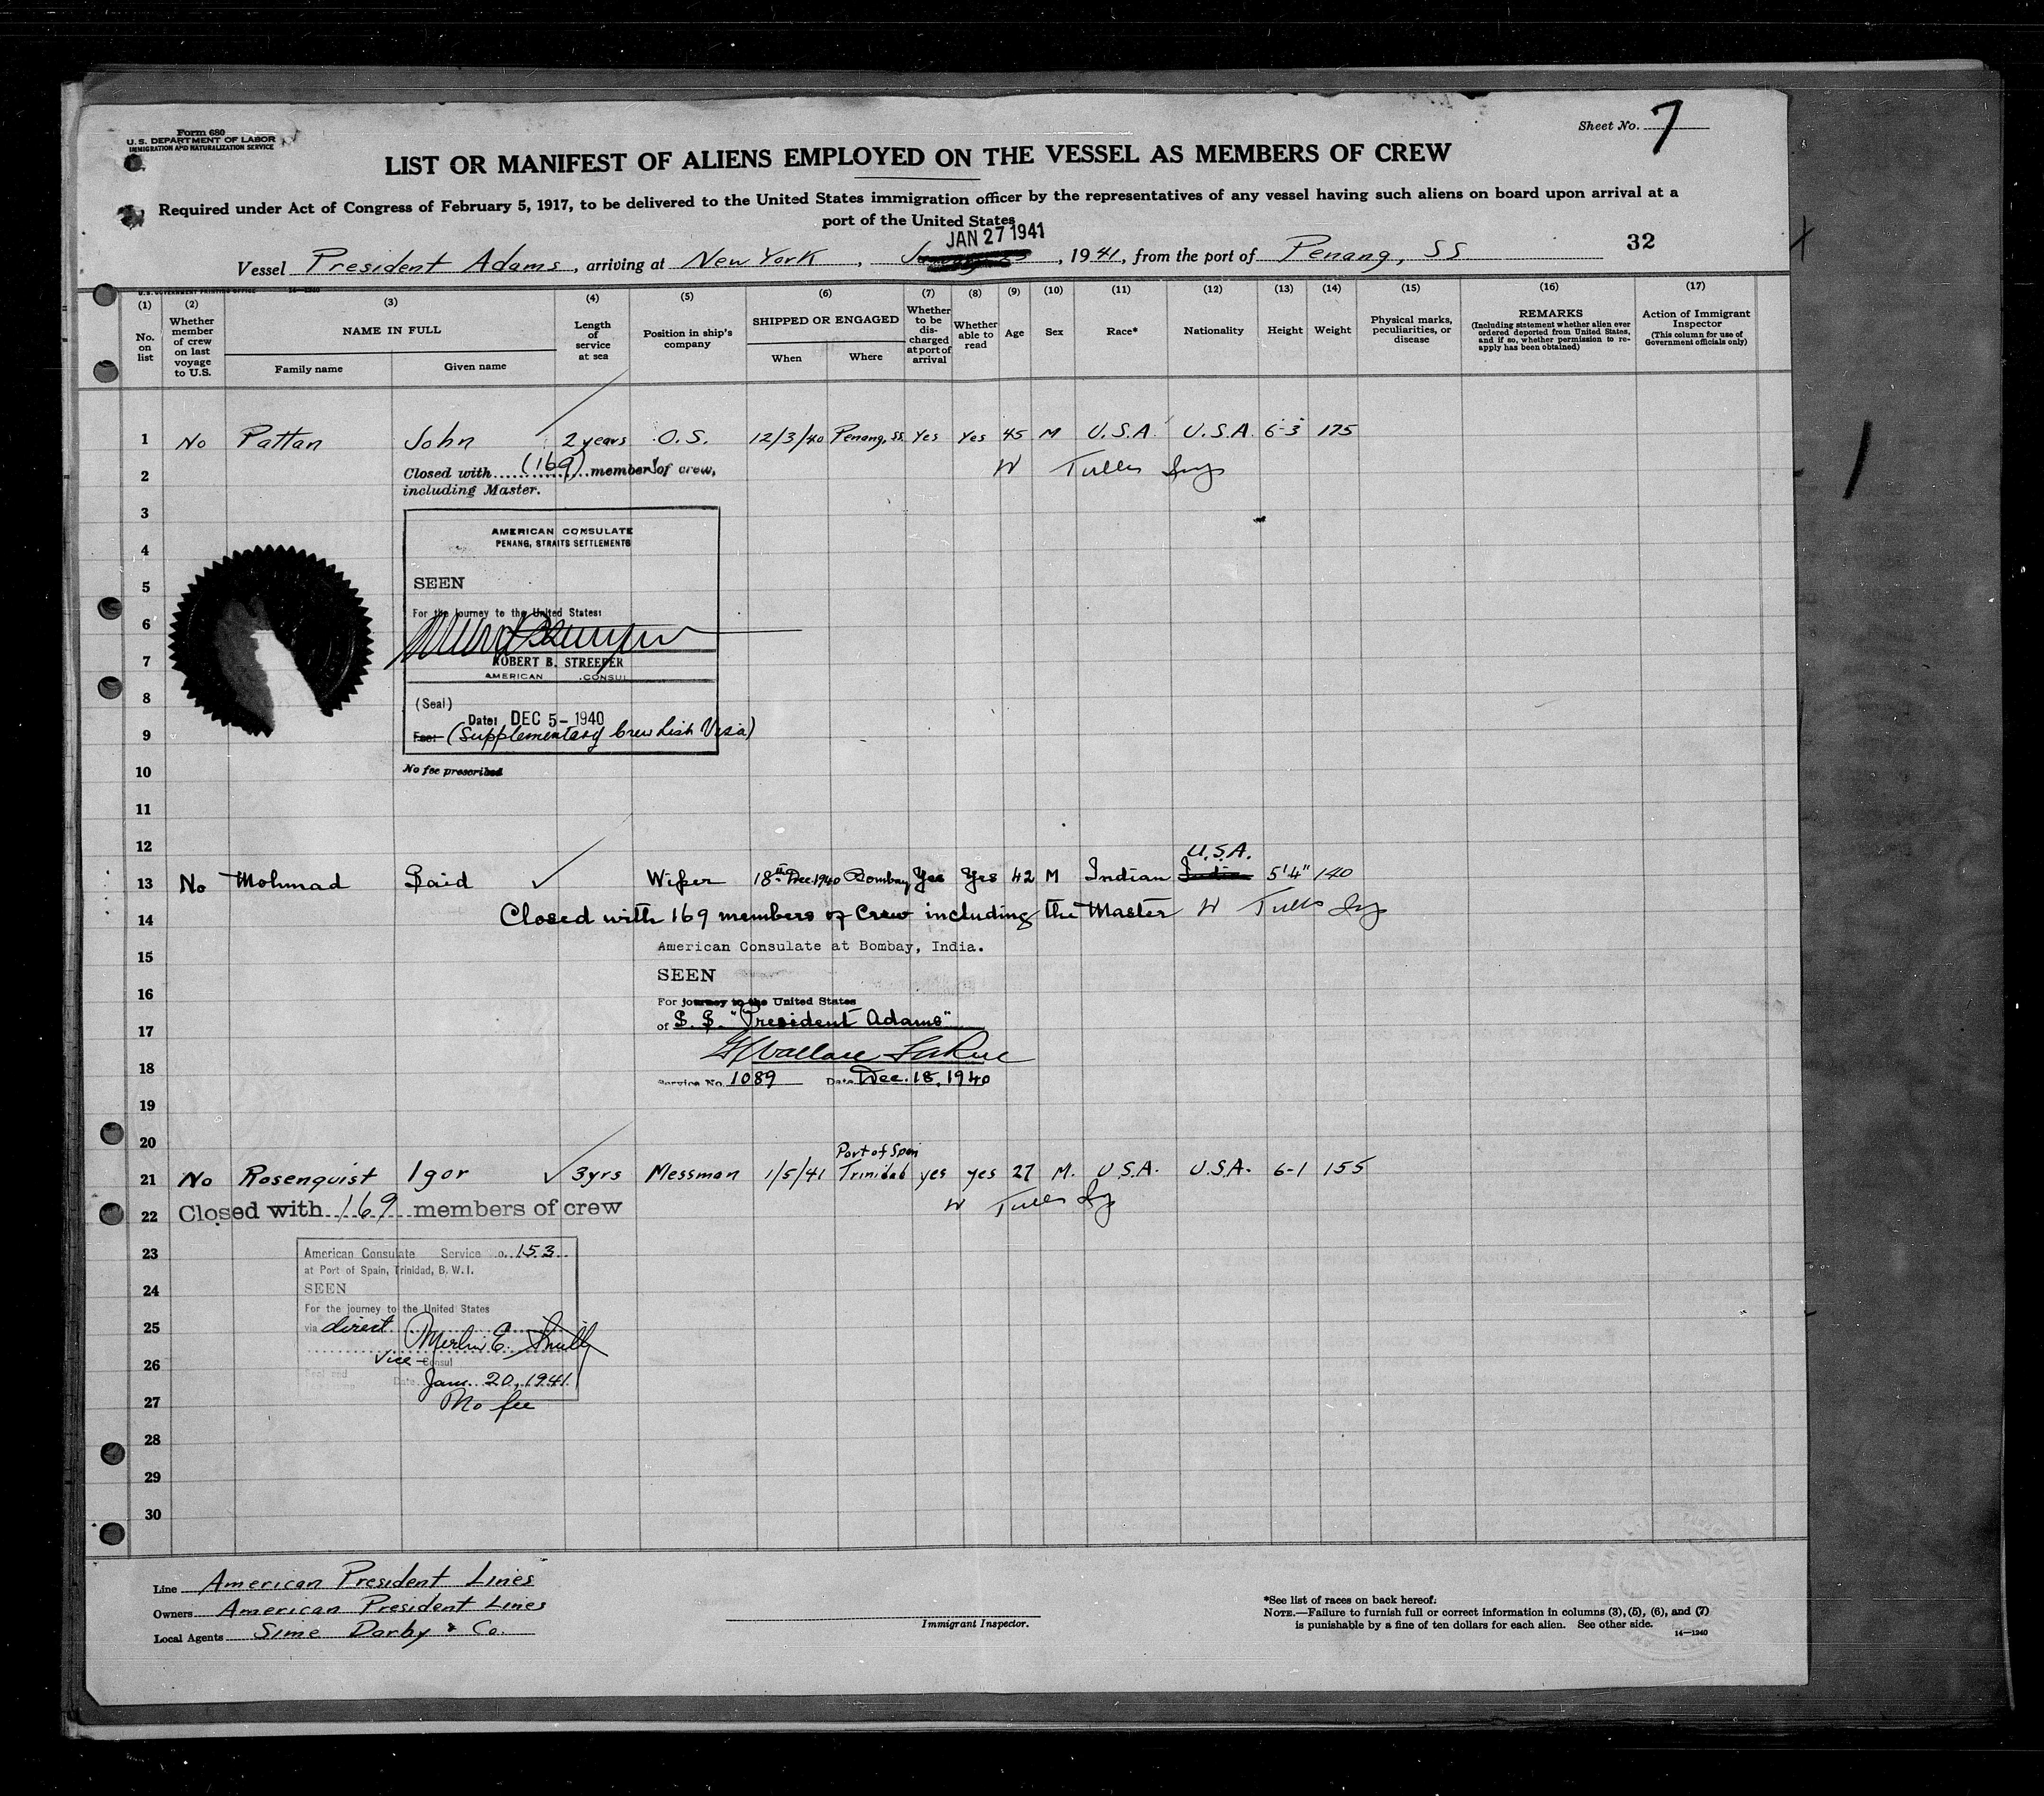 Form 680
U. S. DEPARTMENT OF LABOR
IMMIGRATION AND NATURALIZATION SERVICE
Sheet No. 7
LIST OR MANIFEST OF ALIENS EMPLOYED ON THE VESSEL AS MEMBERS OF CREW
Required under Act of Congress of February 5, 1917, to be delivered to the United States immigration officer by the representatives of any vessel having such aliens on board upon arrival at a
port of the United States
JAN 27 1941
32
Vessel President Adams, arriving at New York, 1941, from the port of Penang, SS
U.S. GOVERNMENT PRINTING OFFICE
(1) (2) (3) (4) (5) (6) (7) (8) (9) (10) (11) (12) (13) (14) (15) (16) (17)
No. on list
Whether member of crew on last voyage to U.S.
NAME IN FULL
Family name
Given name
Length of service at sea
Position in ship's company
SHIPPED OR ENGAGED
When
Where
Whether to be discharged at port of arrival
Whether able to read
Age
Sex
Race*
Nationality
Height
Weight
Physical marks, peculiarities, or disease
REMARKS
(Including statement whether alien ever ordered deported from United States, and if so, whether permission to reapply has been obtained)
Action of Immigrant Inspector
(This column for use of Government officials only)
1 No Pattan John 2 years O.S. 12/3/40 Penang, SS Yes Yes 45 M U.S.A. U.S.A. 6-3 175
2 Closed with (169) members of crew,
including Master.
3
AMERICAN CONSULATE
PENANG, STRAITS SETTLEMENTS
4
5 SEEN
For the journey to the United States:
6
7 ROBERT B. STREEPER
AMERICAN CONSUL
8 (Seal)
Date: DEC 5-1940
9 Fee: (Supplementary Crew List Visa)
10 No fee prescribed
11
12
U.S.A.
13 No Mohmad Said Wiper 18th Dec. 1940 Bombay Yes Yes 42 M Indian India 5'4" 140
14 Closed with 169 members of Crew including the Master
American Consulate at Bombay, India.
15
SEEN
16 For journey to the United States
17 of S.S. "President Adams"
Wallace LaRue
18 Service No. 1089 Date Dec. 18, 1940
19
20
Port of Spain
21 No Rosenquist Igor 3yrs Messman 1/5/41 Trinidad yes yes 27 M. U.S.A. U.S.A. 6-1 155
22 Closed with 169 members of crew
23 American Consulate Service No. 153
at Port of Spain, Trinidad, B. W. I.
24 SEEN
For the journey to the United States
25 via direct
Merlin E. Smith
26 Vice-Consul
Date Jan. 20, 1941
27 No fee
28
29
30
Line American President Lines
Owners American President Lines
Local Agents Sime Darby & Co.
Immigrant Inspector.
*See list of races on back hereof.
NOTE.—Failure to furnish full or correct information in columns (3), (5), (6), and (7)
is punishable by a fine of ten dollars for each alien. See other side.
14—1940